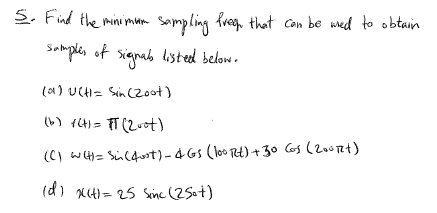 5. Find the minimum sampling freq. that can be used to obtain
samples of signals listed below.
(a) v(t) = Sin(200t)
(b) r(t) = Π(200t)
(c) w(t) = Sin(400t) - 4 Cos(100πt) + 30 Cos(200πt)
(d) x(t) = 25 Sinc(250t)